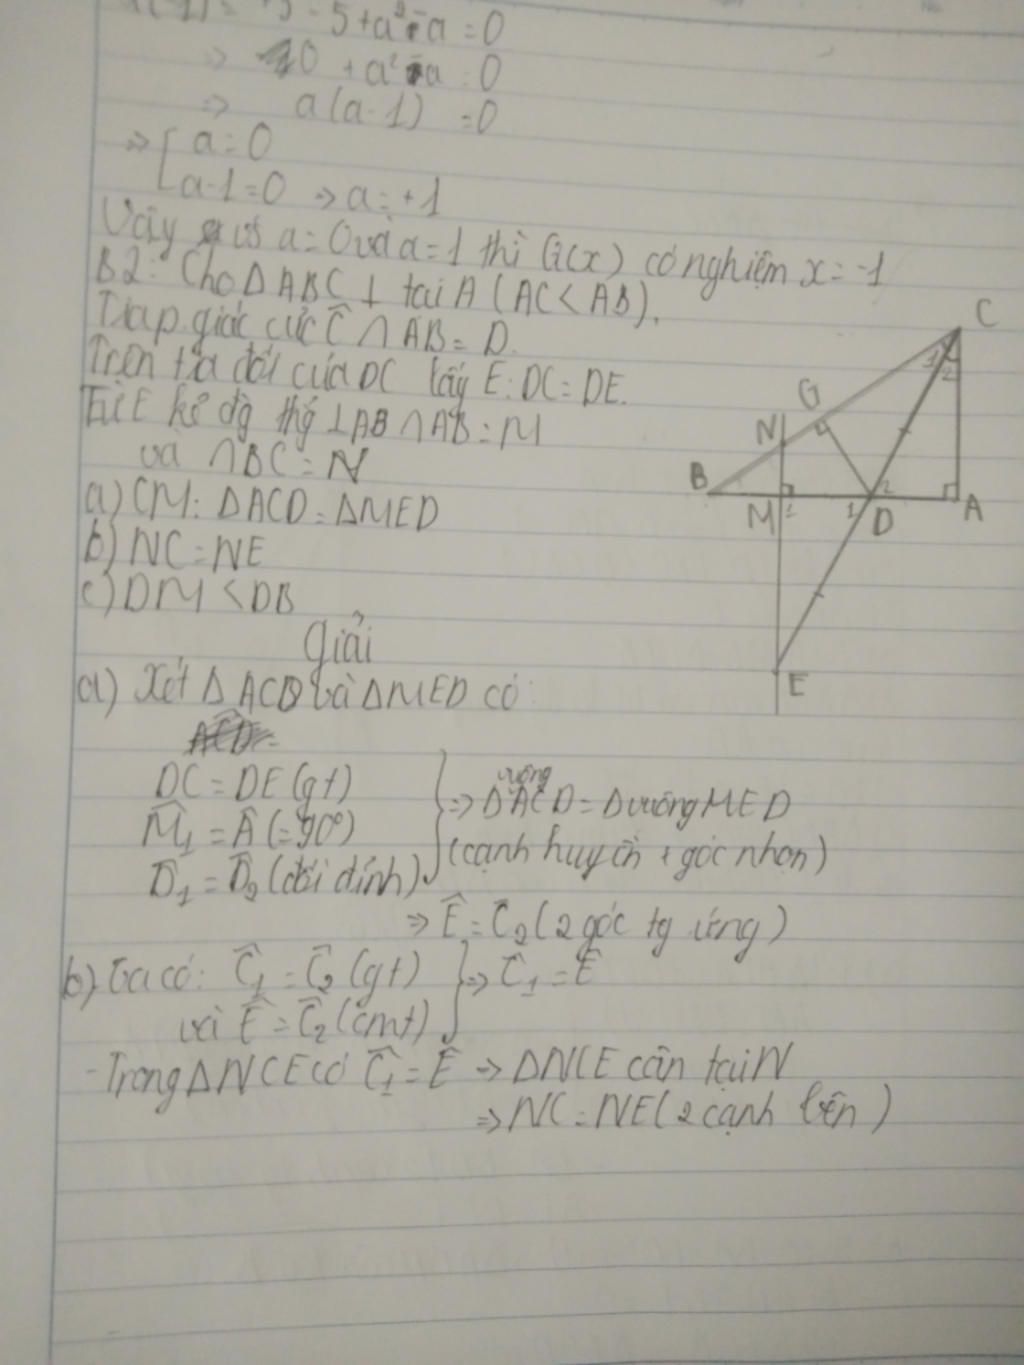 - 5 + a² - a = 0
⇒ 0 + a² - a = 0
⇒ a(a-1) = 0
⇒ [ a = 0
[ a-1 = 0 ⇒ a = +1
Vậy với a = 0 và a = 1 thì G(x) có nghiệm x = -1
B2: Cho Δ ABC ⊥ tại A (AC < AB).
giác Ĉ ∩ AB = D.
Trên tia đối của DC lấy E: DC = DE.
Từ E kẻ đg thg ⊥ AB ∩ AB = M
và ∩ BC = N
a) CM: ΔACD = ΔMED
b) NC = NE
c) DM < DB
C
1 2
G
N
B
M 1 1 D 2 A
E
Giải
a) Xét Δ ACD và ΔMED có:
DC = DE (gt)
M̂₁ = Â (= 90°)
D̂₁ = D̂₂ (đối đỉnh)
} ⇒ Δ vuông ACD = Δ vuông MED
(cạnh huyền + góc nhọn)
⇒ Ê = Ĉ₂ (2 góc tg ứng)
b) Ta có: Ĉ₁ = Ĉ₂ (gt) } ⇒ Ĉ₁ = Ê
và Ê = Ĉ₂ (cmt)
- Trong ΔNCE có Ĉ₁ = Ê ⇒ ΔNCE cân tại N
⇒ NC = NE (2 cạnh bên)